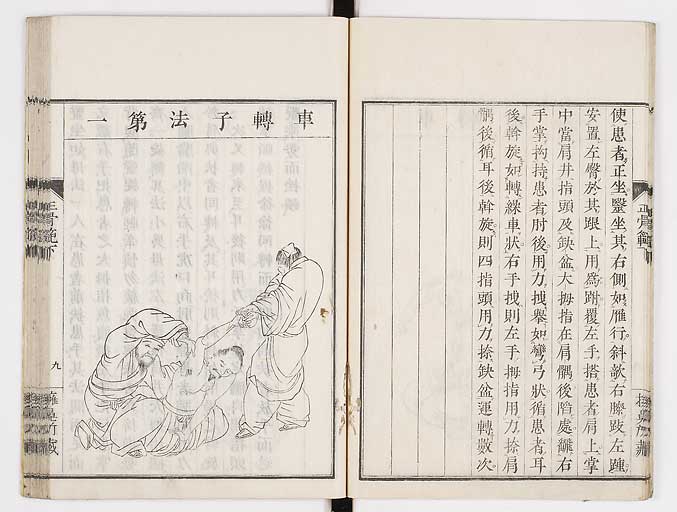 使患者正坐毉坐其右側如雁行斜欹右膝跂左踵
安置左臀於其跟上用爲跗覆左手搭患者肩上掌
中當肩井指頭及鈌盆大拇指在肩髃後陷處䶕右
手掌拘持患者肘後用力拽舉如彎弓狀循患者耳
後斡旋如轉繅車狀右手拽則左手拇指用力捺肩
髃後循耳後斡旋則四指頭用力捺鈌盆運轉數次
正骨範
車轉子法第一
正骨範下
九